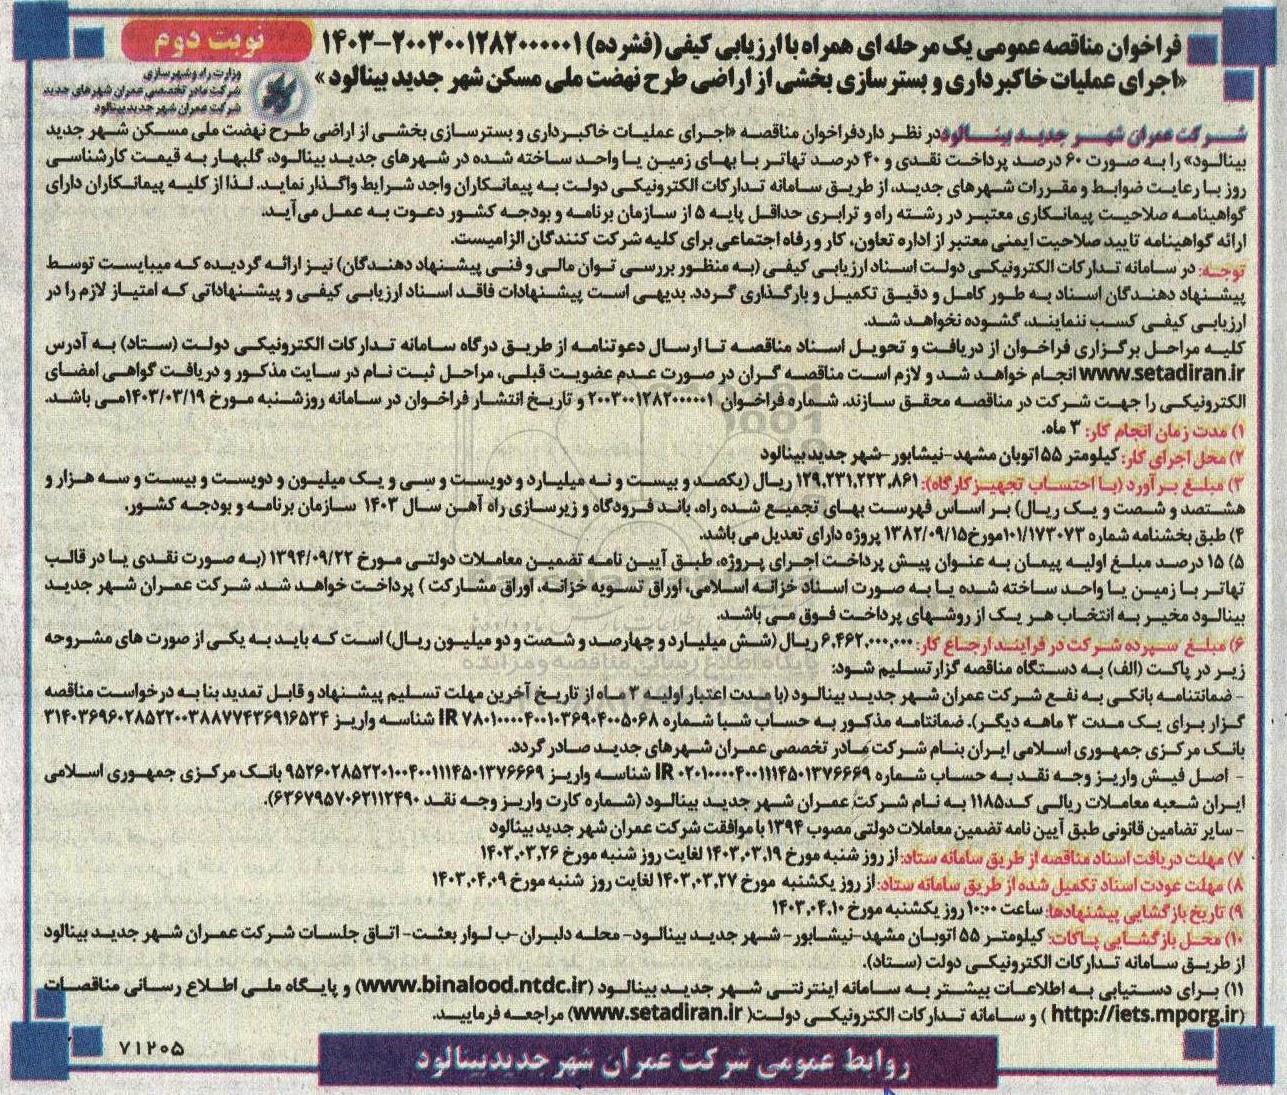 نوبت دوم
فراخوان مناقصه عمومی یک مرحله ای همراه با ارزیابی کیفی (فشرده) ۲۰۰۳۰۰۱۲۸۲۰۰۰۰۰۱-۱۴۰۳
«اجرای عملیات خاکبرداری و بسترسازی بخشی از اراضی طرح نهضت ملی مسکن شهر جدید بینالود»
وزارت راه و شهرسازی
شرکت مادر تخصصی عمران شهرهای جدید
شرکت عمران شهر جدید بینالود
شرکت عمران شهر جدید بینالود در نظر دارد فراخوان مناقصه «اجرای عملیات خاکبرداری و بسترسازی بخشی از اراضی طرح نهضت ملی مسکن شهر جدید
بینالود» را به صورت ۶۰ درصد پرداخت نقدی و ۴۰ درصد تهاتر با بهای زمین یا واحد ساخته شده در شهرهای جدید بینالود، گلبهار به قیمت کارشناسی
روز با رعایت ضوابط و مقررات شهرهای جدید، از طریق سامانه تدارکات الکترونیکی دولت به پیمانکاران واجد شرایط واگذار نماید. لذا از کلیه پیمانکاران دارای
گواهینامه صلاحیت پیمانکاری معتبر در رشته راه و ترابری حداقل پایه ۵ از سازمان برنامه و بودجه کشور دعوت به عمل می‌آید.
ارائه گواهینامه تایید صلاحیت ایمنی معتبر از اداره تعاون، کار و رفاه اجتماعی برای کلیه شرکت کنندگان الزامیست.
توجه: در سامانه تدارکات الکترونیکی دولت اسناد ارزیابی کیفی (به منظور بررسی توان مالی و فنی پیشنهاد دهندگان) نیز ارائه گردیده که میبایست توسط
پیشنهاد دهندگان اسناد به طور کامل و دقیق تکمیل و بارگذاری گردد. بدیهی است پیشنهادات فاقد اسناد ارزیابی کیفی و پیشنهاداتی که امتیاز لازم را در
ارزیابی کیفی کسب ننمایند، گشوده نخواهد شد.
کلیه مراحل برگزاری فراخوان از دریافت و تحویل اسناد مناقصه تا ارسال دعوتنامه از طریق درگاه سامانه تدارکات الکترونیکی دولت (ستاد) به آدرس
www.setadiran.ir انجام خواهد شد و لازم است مناقصه گران در صورت عدم عضویت قبلی، مراحل ثبت نام در سایت مذکور و دریافت گواهی امضای
الکترونیکی را جهت شرکت در مناقصه محقق سازند. شماره فراخوان ۲۰۰۳۰۰۱۲۸۲۰۰۰۰۰۱ و تاریخ انتشار فراخوان در سامانه روزشنبه مورخ ۱۴۰۳/۰۳/۱۹می باشد.
۱) مدت زمان انجام کار: ۳ ماه.
۲) محل اجرای کار: کیلومتر ۵۵ اتوبان مشهد-نیشابور-شهر جدید بینالود
۳) مبلغ برآورد (با احتساب تجهیز کارگاه): ۱۲۹,۲۳۱,۲۲۳,۸۶۱ ریال (یکصد و بیست و نه میلیارد و دویست و سی و یک میلیون و دویست و بیست و سه هزار و
هشتصد و شصت و یک ریال) بر اساس فهرست بهای تجمیع شده راه، باند فرودگاه و زیرسازی راه آهن سال ۱۴۰۳ سازمان برنامه و بودجه کشور.
۴) طبق بخشنامه شماره ۱۰۱/۱۷۳۰۷۳مورخ۱۳۸۲/۰۹/۱۵ پروژه دارای تعدیل می باشد.
۵) ۱۵ درصد مبلغ اولیه پیمان به عنوان پیش پرداخت اجرای پروژه، طبق آیین نامه تضمین معاملات دولتی مورخ ۱۳۹۴/۰۹/۲۲ (به صورت نقدی یا در قالب
تهاتر با زمین یا واحد ساخته شده یا به صورت اسناد خزانه اسلامی، اوراق تسویه خزانه، اوراق مشارکت ) پرداخت خواهد شد. شرکت عمران شهر جدید
بینالود مخیر به انتخاب هر یک از روشهای پرداخت فوق می باشد.
۶) مبلغ سپرده شرکت در فرایند ارجاع کار: ۶,۴۶۲,۰۰۰,۰۰۰ ریال (شش میلیارد و چهارصد و شصت و دو میلیون ریال) است که باید به یکی از صورت های مشروحه
زیر در پاکت (الف) به دستگاه مناقصه گزار تسلیم شود:
- ضمانتنامه بانکی به نفع شرکت عمران شهر جدید بینالود (با مدت اعتبار اولیه ۳ ماه از تاریخ آخرین مهلت تسلیم پیشنهاد و قابل تمدید بنا به درخواست مناقصه
گزار برای یک مدت ۳ ماهه دیگر). ضمانتامه مذکور به حساب شبا شماره IR ۷۸۰۱۰۰۰۰۴۰۰۱۰۳۶۹۰۴۰۰۵۰۶۸ شناسه واریز ۳۱۴۰۳۶۹۶۰۲۸۵۲۲۰۰۳۸۸۷۷۴۳۶۹۱۶۵۳۴
بانک مرکزی جمهوری اسلامی ایران بنام شرکت مادر تخصصی عمران شهرهای جدید صادر گردد.
- اصل فیش واریز وجه نقد به حساب شماره IR ۰۲۰۱۰۰۰۰۴۰۰۱۱۱۴۵۰۱۳۷۶۶۶۹ شناسه واریز ۹۵۲۶۰۲۸۵۲۲۰۱۰۰۴۰۰۱۱۱۴۵۰۱۳۷۶۶۶۹ بانک مرکزی جمهوری اسلامی
ایران شعبه معاملات ریالی کد۱۱۸۵ به نام شرکت عمران شهر جدید بینالود (شماره کارت واریز وجه نقد ۶۳۶۷۹۵۷۰۶۲۱۱۲۴۹۰).
- سایر تضامین قانونی طبق آیین نامه تضمین معاملات دولتی مصوب ۱۳۹۴ با موافقت شرکت عمران شهر جدید بینالود
۷) مهلت دریافت اسناد مناقصه از طریق سامانه ستاد: از روز شنبه مورخ ۱۴۰۳,۰۳,۱۹ لغایت روز شنبه مورخ ۱۴۰۳,۰۳,۲۶
۸) مهلت عودت اسناد تکمیل شده از طریق سامانه ستاد: از روز یکشنبه مورخ ۱۴۰۳,۰۳,۲۷ لغایت روز شنبه مورخ ۱۴۰۳,۰۴,۰۹
۹) تاریخ بازگشایی پیشنهادها: ساعت ۱۰:۰۰ روز یکشنبه مورخ ۱۴۰۳,۰۴,۱۰
۱۰) محل بازگشایی پاکات: کیلومتر ۵۵ اتوبان مشهد-نیشابور- شهر جدید بینالود- محله دلبران-ب لوار بعثت- اتاق جلسات شرکت عمران شهر جدید بینالود
از طریق سامانه تدارکات الکترونیکی دولت (ستاد).
۱۱) برای دستیابی به اطلاعات بیشتر به سامانه اینترنتی شهر جدید بینالود (www.binalood.ntdc.ir) و پایگاه ملی اطلاع رسانی مناقصات
(http://iets.mporg.ir ) و سامانه تدارکات الکترونیکی دولت( www.setadiran.ir) مراجعه فرمایید.
روابط عمومی شرکت عمران شهر جدید بینالود
۷۱۲۰۵